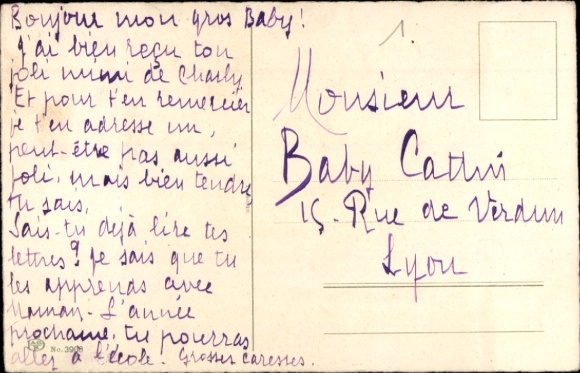 Bonjour mon gros Baby!
J'ai bien reçu ton
joli mimi de Charly
Et pour t'en remercier
je t'en adresse un,
peut-être pas aussi
joli, mais bien tendre
tu sais.
Sais-tu déjà lire tes
lettres? Je sais que tu
les apprends avec
Maman. L'année
prochaine, tu pourras
aller à l'école. Grosses caresses.
1.
Monsieur
Baby
15 - Rue de Verdun
Lyon